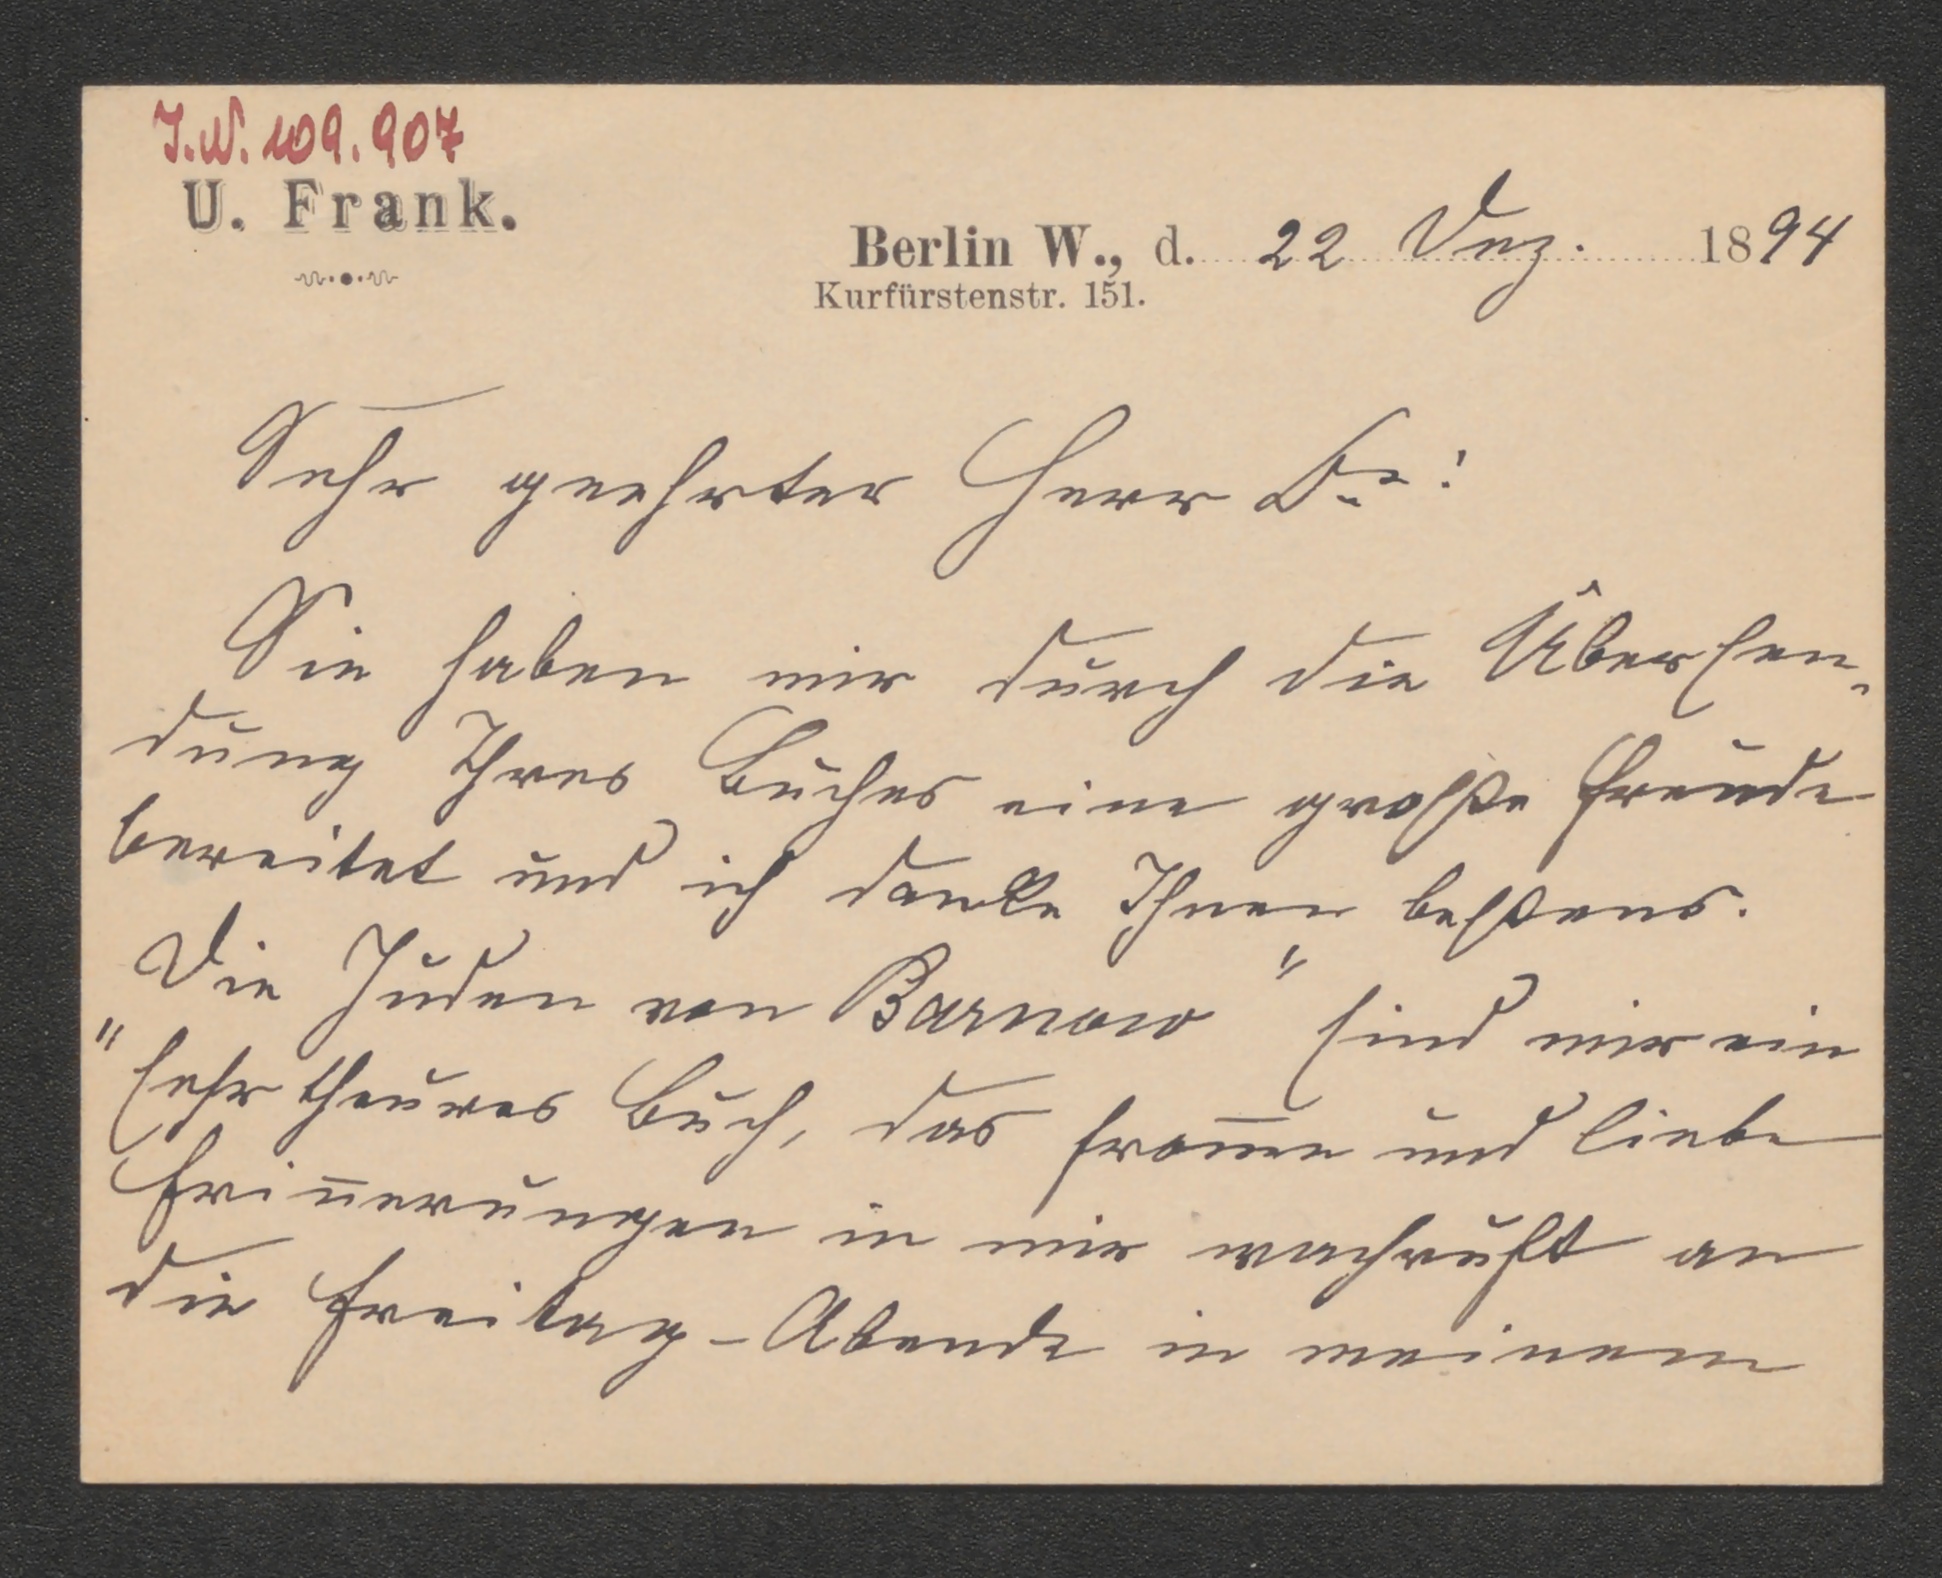 J.N. 109.907
U. Frank.
Berlin W., d. 22 Dez. 1894
Kurfürstenstr. 151.
Sehr geehrter Herr Dr:
Sie haben mir durch die Übersen-
dung Ihres Buches eine große Freude
bereitet und ich danke Ihnen bestens.
„Die Juden von Barnow" sind mir ein
sehr theures Buch, das from̅e und liebe
Erin̅erungen in mir wachruft an
die Freitag-Abende in meinem